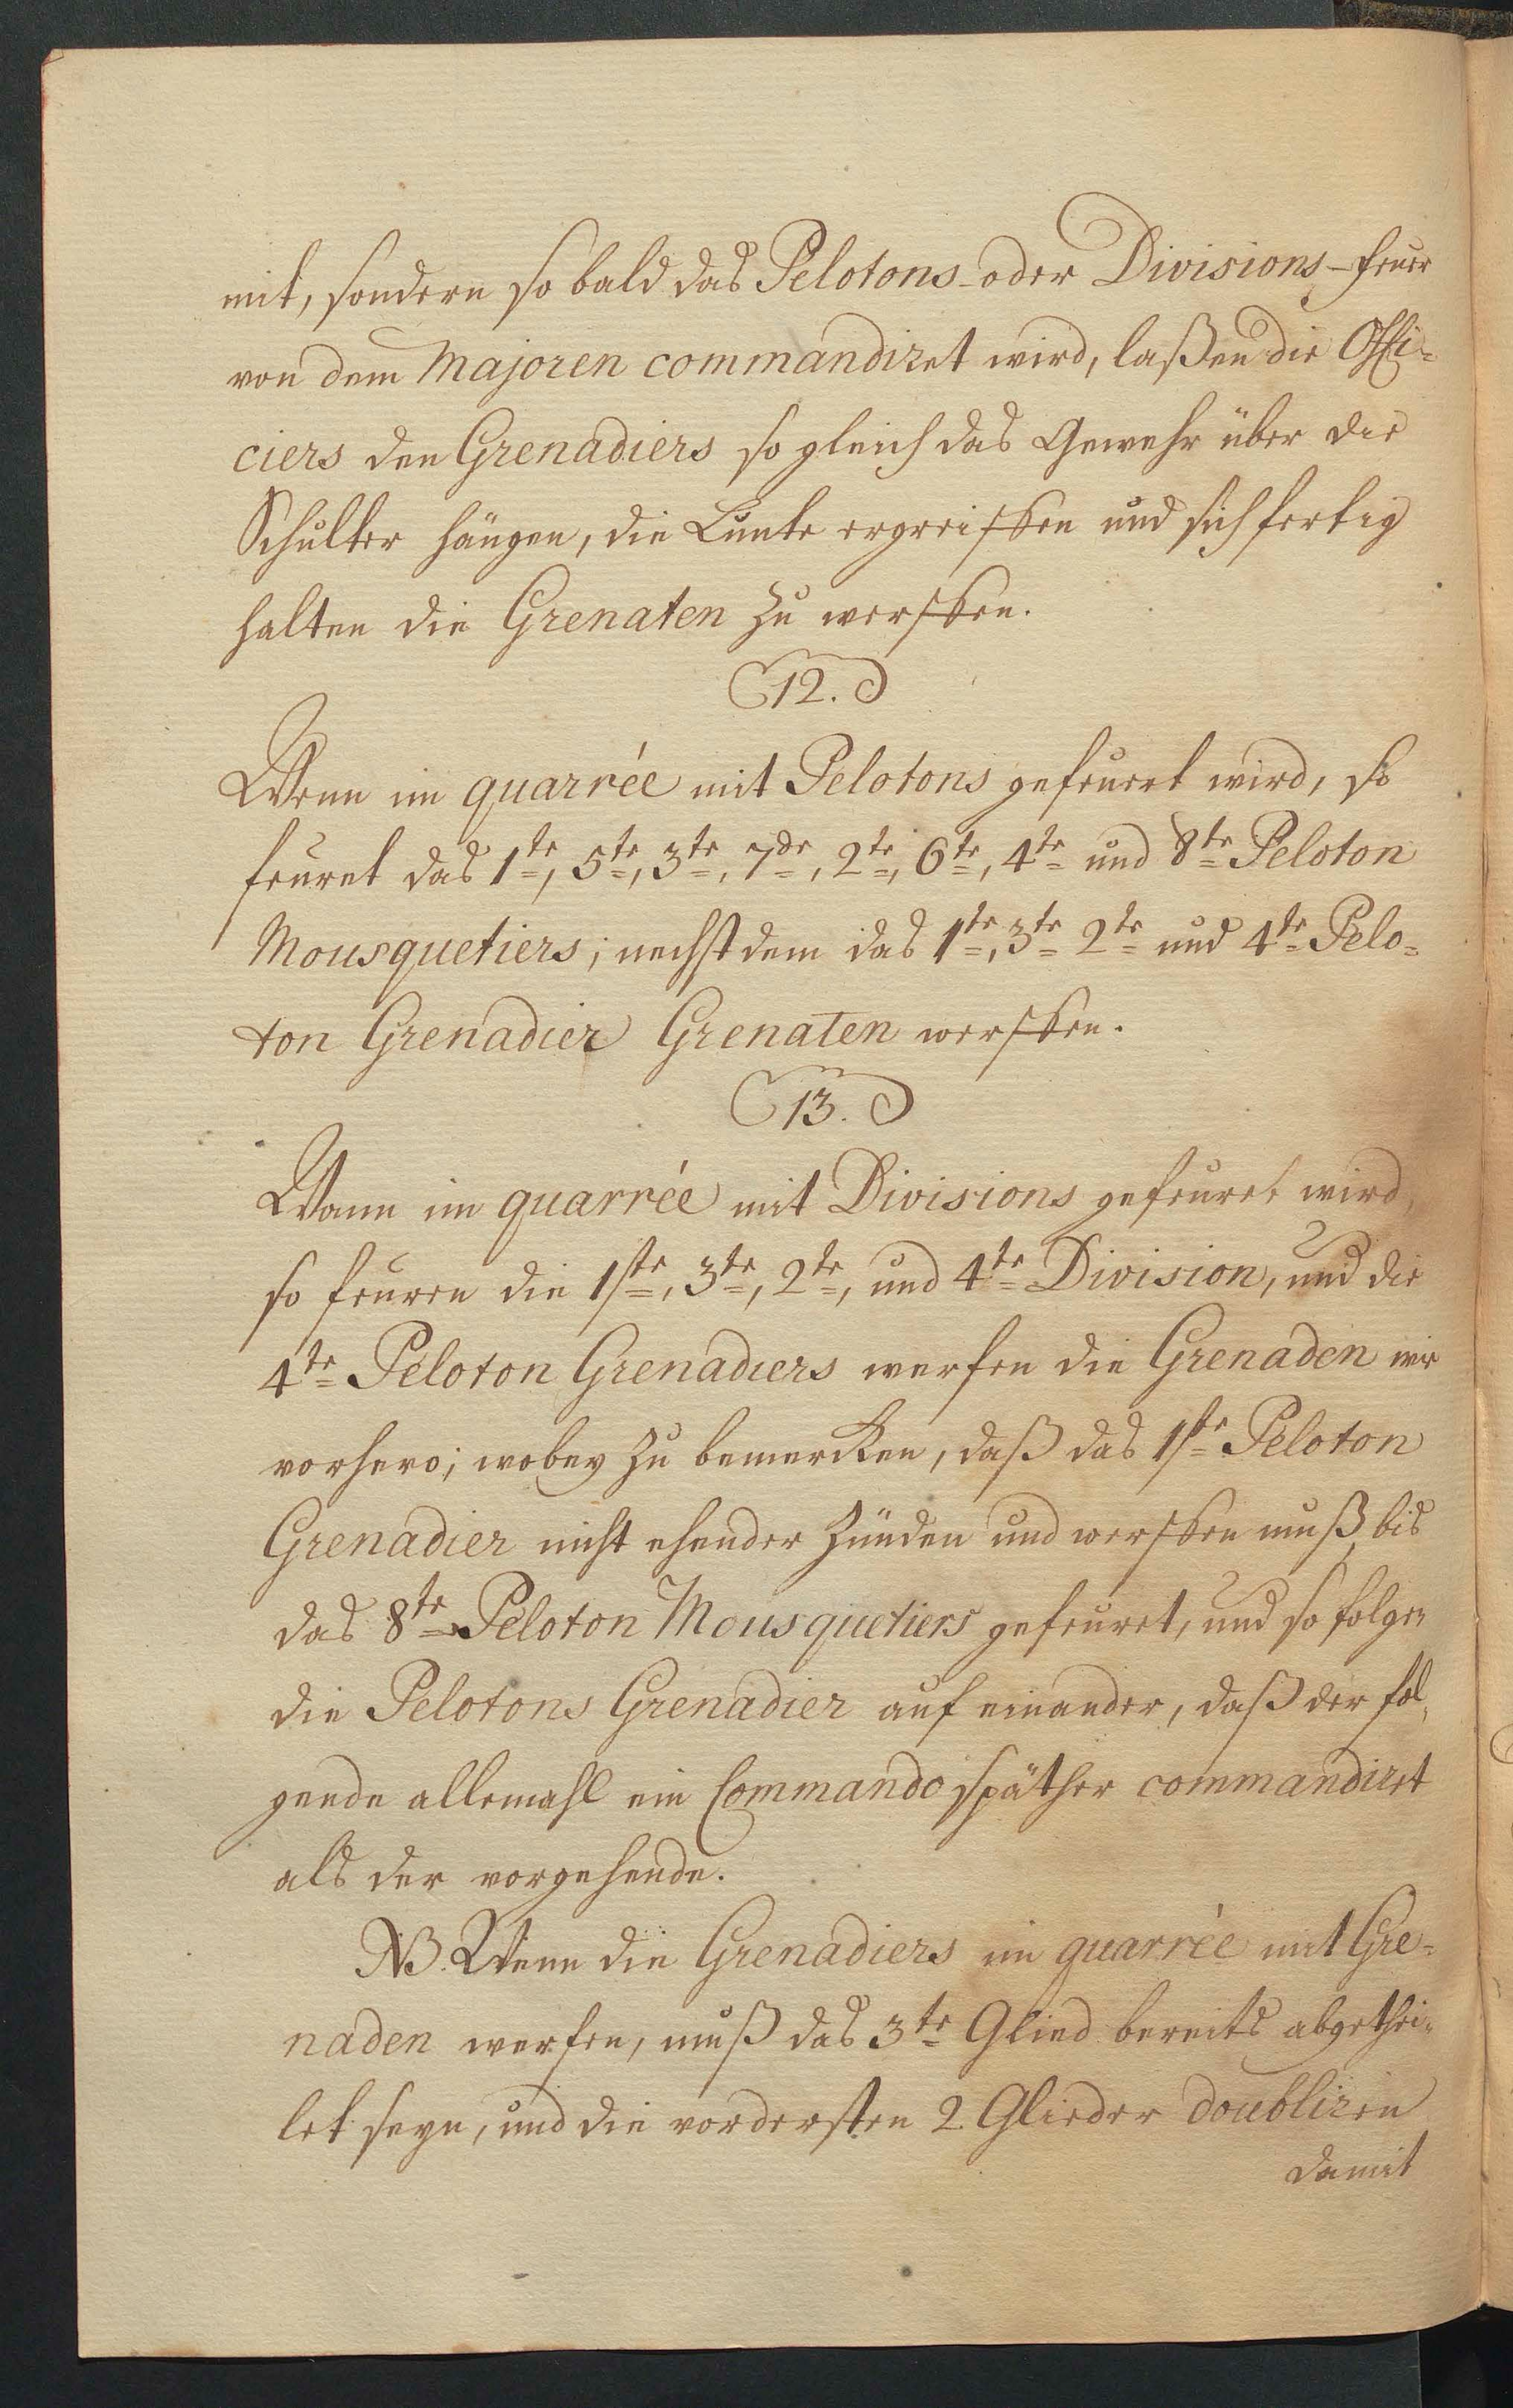 mit, sondern so bald das Pelotons- oder Divisions-feuer
von dem Majoren commandiret wird, laßen die Offi-
ciers den Grenadiers so gleich das Gewehr über die
Schulter hängen, die Lunte ergreiffen und sich fertig
halten die Grenaten zu werffen.
12.
Wenn im quarrée mit Pelotons gefeuert wird, so
feuret das 1te, 5te, 3te, 7de, 2te, 6te, 4te und 8te Peloton
Mousquetiers; nechst dem das 1te, 3te 2te und 4te Pelo-
ton Grenadier Grenaten werffen.
13.
Wann im quarrée mit Divisions gefeuret wird,
so feuren die 1ste, 3te, 2te, und 4te Division, und die
4te Peloton Grenadiers werfen die Grenaden wie
vorhero; wobey zu bemercken, daß das 1ste Peloton
Grenadier nicht ehender zünden und werffen muß, bis
das 8te Peloton Mousquetiers gefeuret, und so folgen
die Pelotons Grenadier auf einander, daß der fol-
gende allemahl ein Commando späther commandiret
als der vorgehende.
NB. Wenn die Grenadiers im quarrée mit Gre-
naden werfen, muß das 3te Glied bereits abgethei-
let seyn, und die vordersten 2 Glieder doubliren
damit